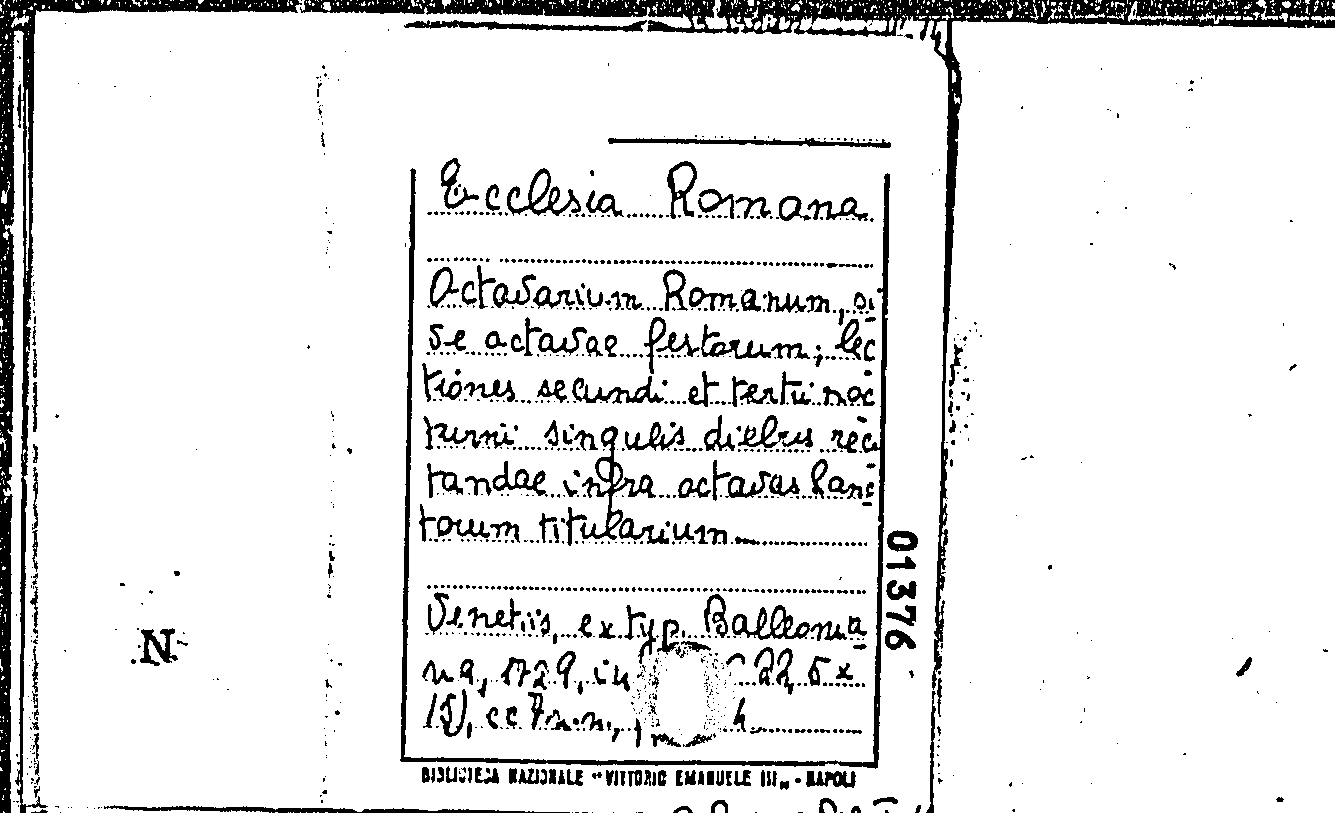 Ecclesia Romana
Octavarium Romanum, si
ve actavae festorum; lec
tiones secundi et tertii noc
turni singulis diebus reci
tandae infra octavas sanc
torum titularium
Venetiis, ex typ. Balleonia
na, 1729, in 22,5 x
15), cc 7 n.n.,
01376
N
BIBLIOTECA NAZIONALE "VITTORIO EMANUELE III" - NAPOLI